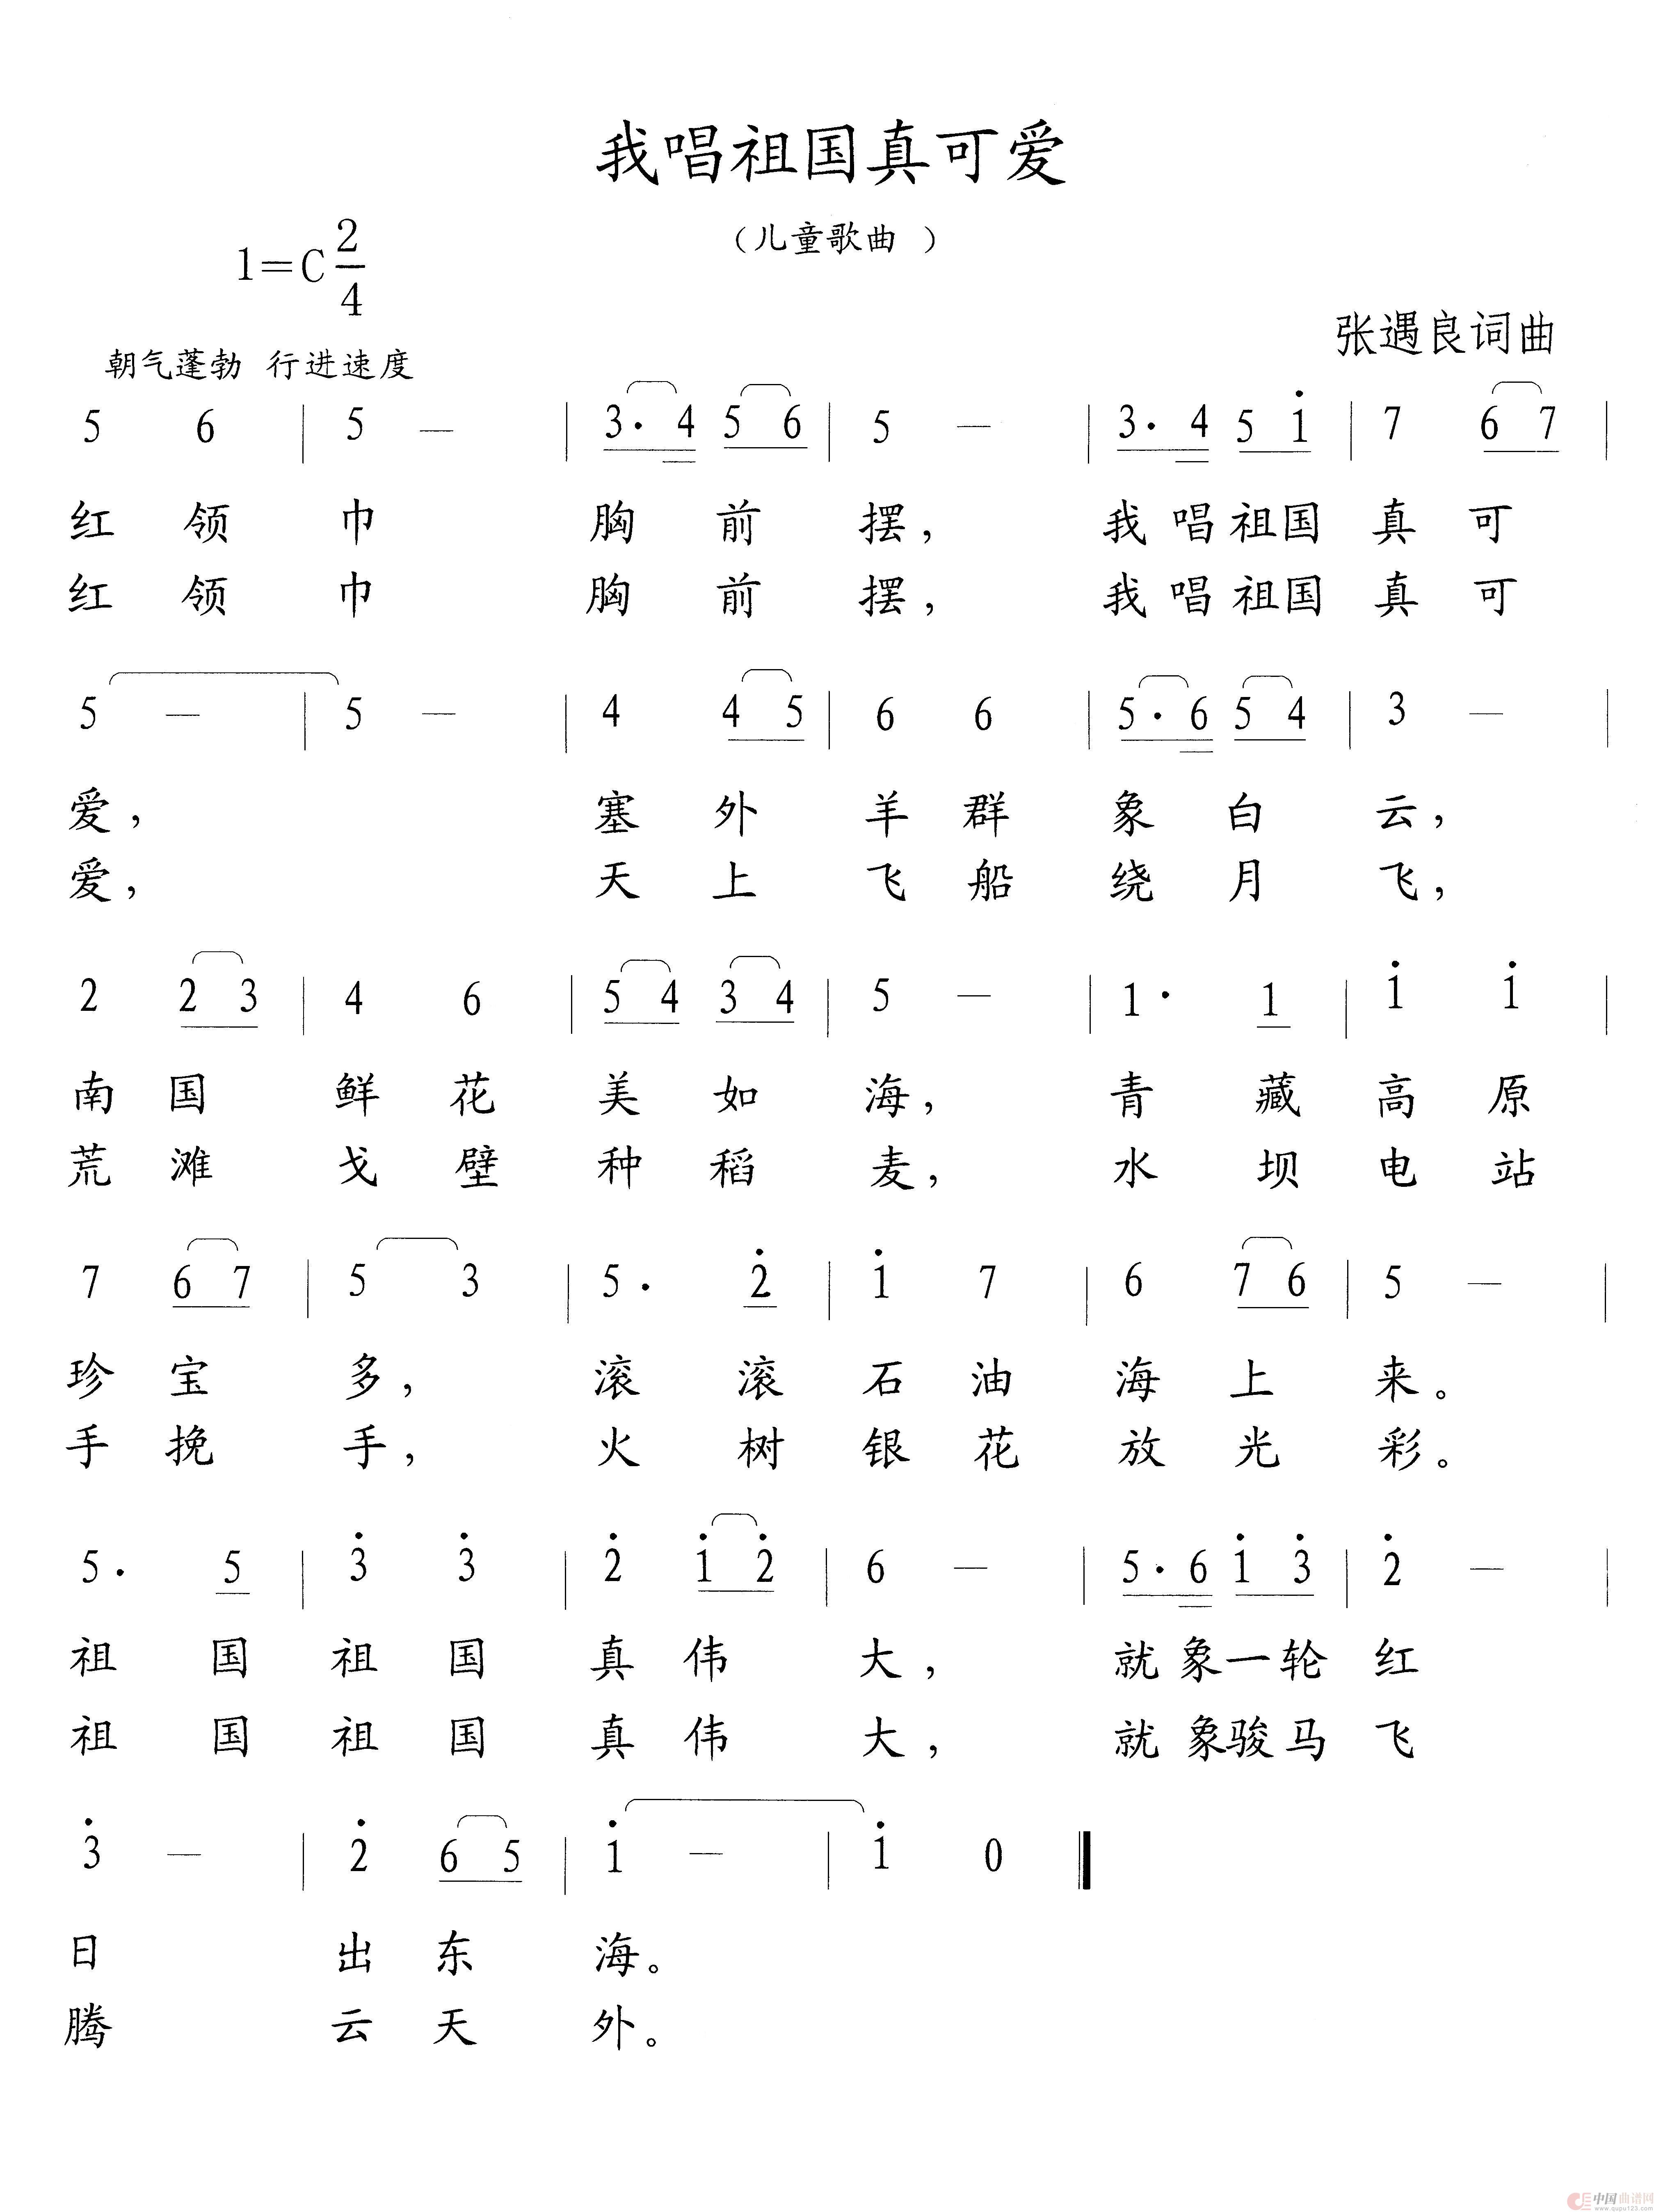 我唱祖国真可爱
（儿童歌曲 ）
1=C 2/4
张遇良词曲
朝气蓬勃 行进速度
5 6 | 5 — | 3· 4 5 6 | 5 — | 3· 4 5 i | 7 6 7 |
红 领 巾 胸 前 摆， 我 唱 祖国 真 可
红 领 巾 胸 前 摆， 我 唱 祖国 真 可
5 — | 5 — | 4 4 5 | 6 6 | 5· 6 5 4 | 3 — |
爱， 塞 外 羊 群 象 白 云，
爱， 天 上 飞 船 绕 月 飞，
2 2 3 | 4 6 | 5 4 3 4 | 5 — | 1· 1 | i i |
南 国 鲜 花 美 如 海， 青 藏 高 原
荒 滩 戈 壁 种 稻 麦， 水 坝 电 站
7 6 7 | 5 3 | 5· 2̇ | i 7 | 6 7 6 | 5 — |
珍 宝 多， 滚 滚 石 油 海 上 来。
手 挽 手， 火 树 银 花 放 光 彩。
5· 5 | 3̇ 3̇ | 2̇ i 2̇ | 6 — | 5· 6 i 3̇ | 2̇ — |
祖 国 祖 国 真 伟 大， 就 象一轮 红
祖 国 祖 国 真 伟 大， 就 象骏马 飞
3̇ — | 2̇ 6 5 | i — | i 0 ‖
日 出 东 海。
腾 云 天 外。
中国曲谱网
www.qupu123.com